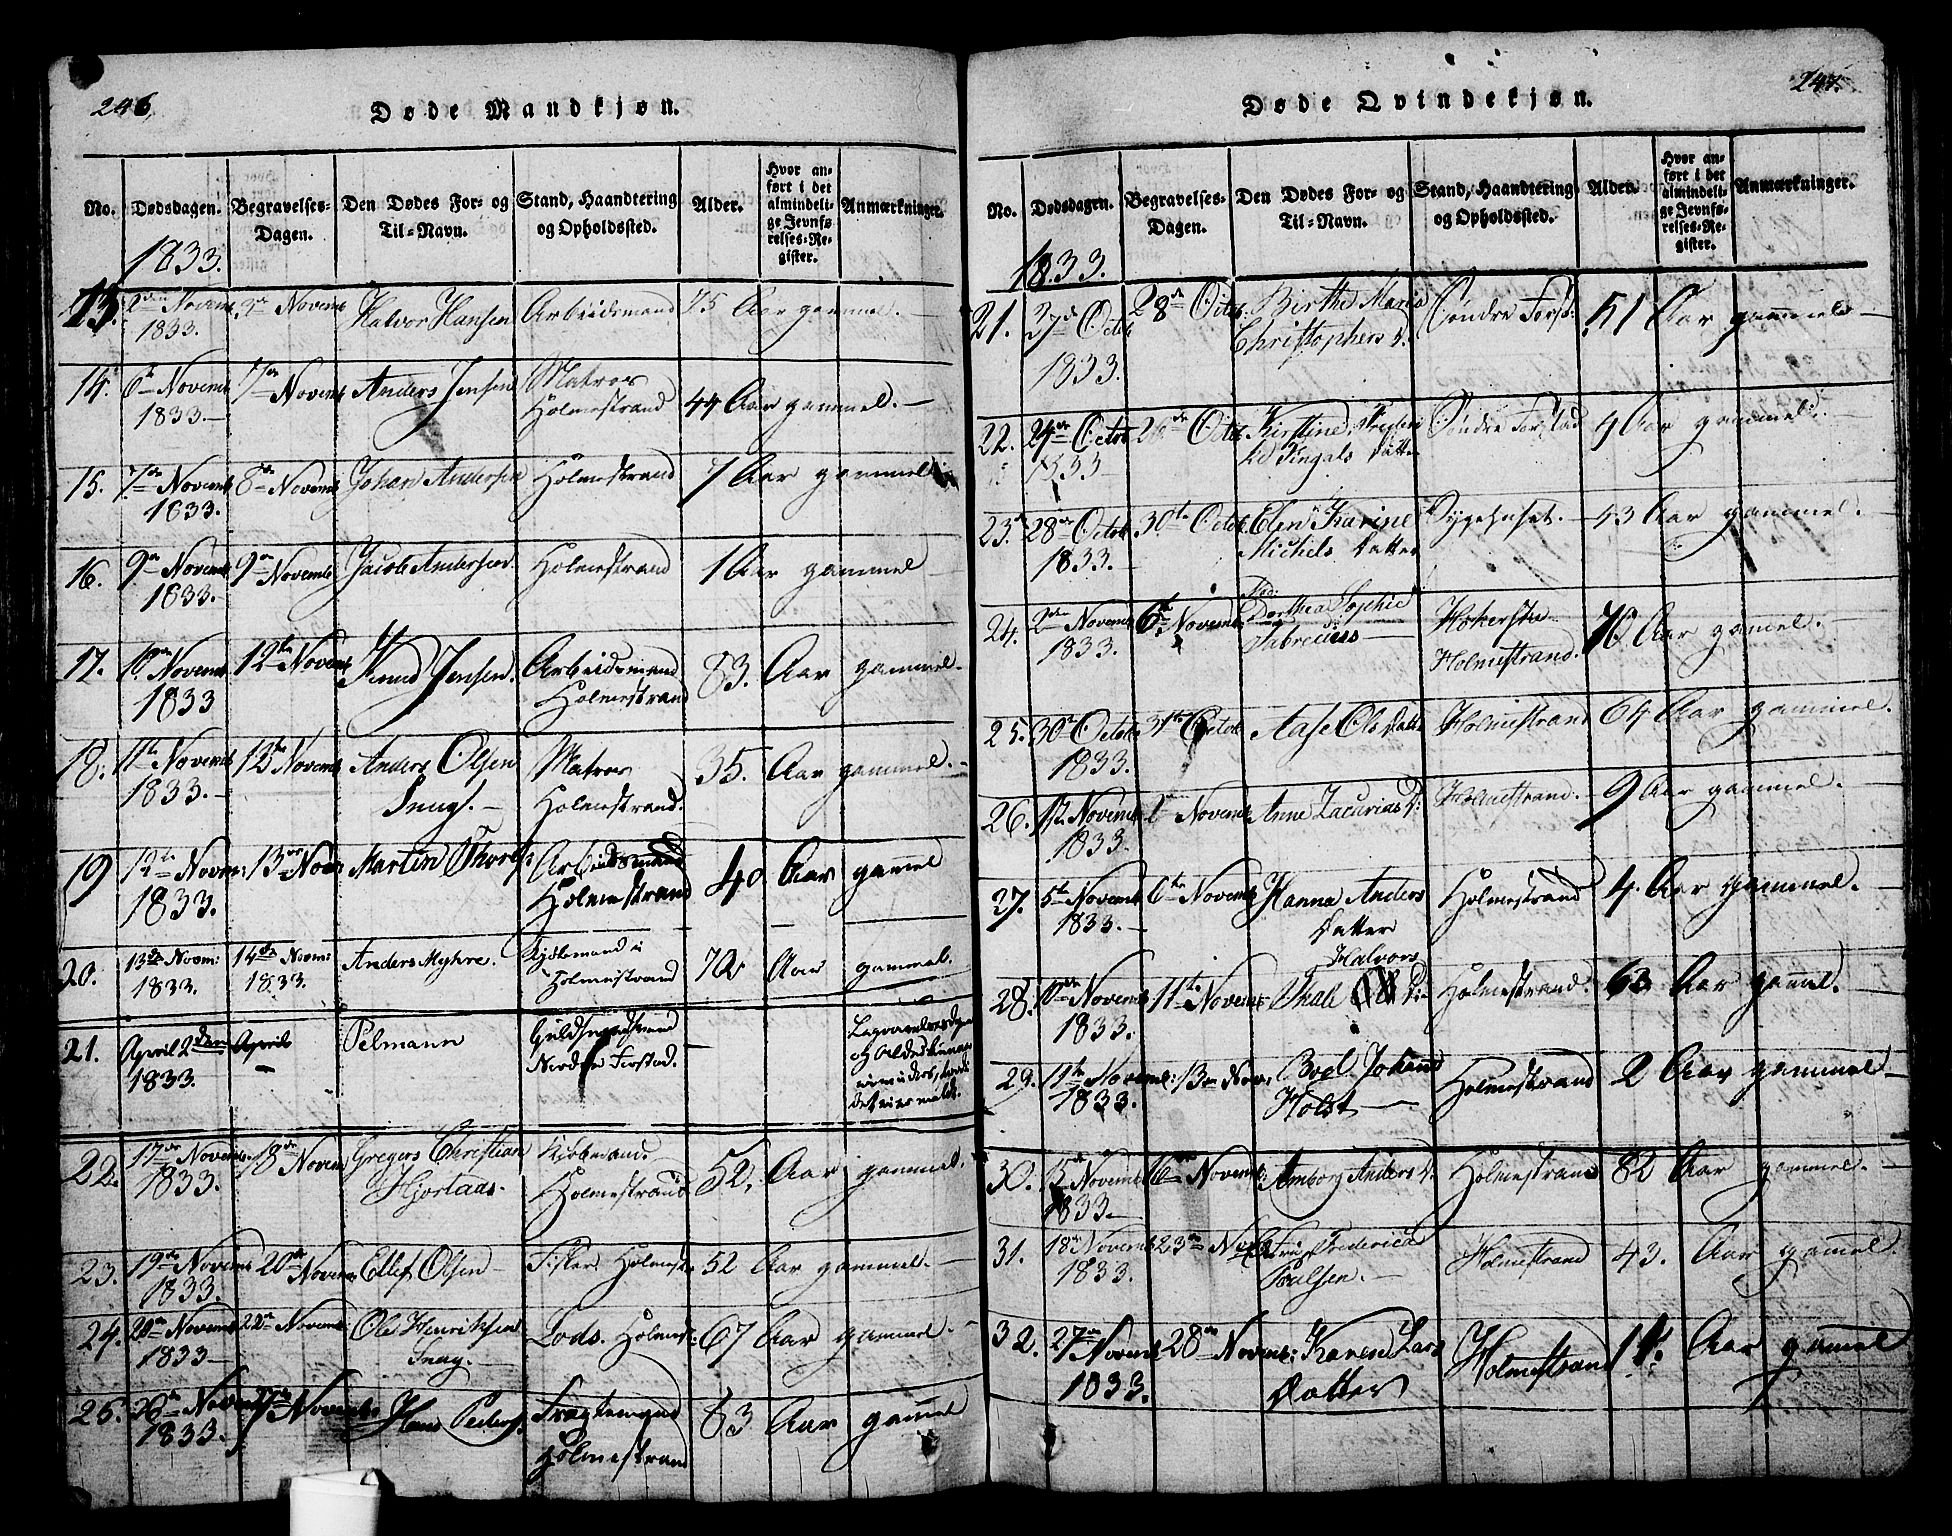 246.
Døde Mandkjøn.
No.
Dødsdagen.
Begravelses-
Dagen.
Den Dødes For- og
Til-Navn.
Stand, Haandtering
og Opholdssted.
Alder.
Hvor an-
ført i det
almindeli-
ge Jevnfø-
relses-Re-
gister.
Anmærkninger.
1833.
13. 2den Novemb 3de Novemb Halvor Hansen Arbeidsmand 75 Aar gammel.
1833.
14. 6te Novemb 7de Novemb Anders Jensen Matros 44 Aar gammel.
1833. Holmestrand
15. 7de Novemb 8de Novemb Johan Andersen Holmestrand 7 Aar gammel
1833.
16. 9de Novemb 9de Novemb Jacob Andersen Holmestrand 1 Aar gammel
1833.
17. 10de Novemb 12te Novemb Knud Jensen. Arbeidsmand 83. Aar gammel.
1833 Holmestrand
18. 11te Novemb 12te Novemb Anders Olsen Matros 35. Aar gammel.
1833. Snug. Holmestrand.
19 12te Novem: 13de Nov: Martin Arbeidsmand 40 Aar gammel
1833. Holmestrand
20. 13de Novm: 14de Novm: Anders Myhre. Kjøbmand i 72 Aar gammel.
1833. 1833. Holmestrand
21. April 2den April Pelmann Guldsmedsvend
1833. Nordre Forstad.
22. 17de Novemb. 18de Novem Gregers Christian Kjøbmand. 52. Aar gammel.
1833. Hjortaas. Holmestrand
23. 19de Novemb 20de Novem Ellef Olsen Fisker Holmestr 52 Aar gammel.
1833.
24. 20de Novemb 22de Novemb Ole Henriksen Lods. Holmest: 67 Aar gammel.
1833 Snug.
25. 26de Novemb 27de Novemb. Hans Peders. Fragtemand 83 Aar gammel
1833. Holmestrand
247.
Døde Qvindekjøn.
No.
Dødsdagen.
Begravelses-
Dagen.
Den Dødes For- og
Til-Navn.
Stand, Haandtering
og Opholdssted.
Alder.
Hvor an-
ført i det
almindeli-
ge Jevnfø-
relses-Re-
gister.
Anmærkninger.
1833.
21. 27de Octob 28de Octob. Birthe Maria Søndre Forst: 51 Aar gammel
1833. Christophers d.
22. 24de Octob 26de Octob Kirstine Søndre Forstad 9 Aar gammel.
1833 Datter
23. 28de Octob 30te Octob. Elen Karine Sygehuset. 43 Aar gammel.
1833. Michels Datter
24. 2den Novemb 6te Novemb. Mad: Dorthea Sophie Høkerske 76 Aar gammel.
1833. Fabrecius Holmestrand.
25. 30te Octob. 31te Octob Aase Ols Datt: Holmestrand 64 Aar gammel.
1833.
26. Novemb Novemb. Anne Zacarias D: Holmestrand. 9 Aar gammel.
1833.
27. 5te Novemb 6te Novemb Hanna Anders Holmestrand 4. Aar gammel.
1833. Datter
Halvors
28. 10de Novemb 11te Novemb. D: Holmestrand. 63 Aar gammel.
1833.
29. 11te Novemb: 13de Nov: Boel Johans Holmestrand 2 Aar gammel
1833. Holst
30. 15de Novemb 16de Novemb. Amborg Anders d. Holmestrand 82 Aar gammel.
1833.
31. 18de Novemb 23de Novb Fru Frederica Holmestrand 43. Aar gammel.
1833. Poulsen.
32. 27de Novemb 28de Novemb: Karen Lars Holmestrand Aar gammel
1833. Datter